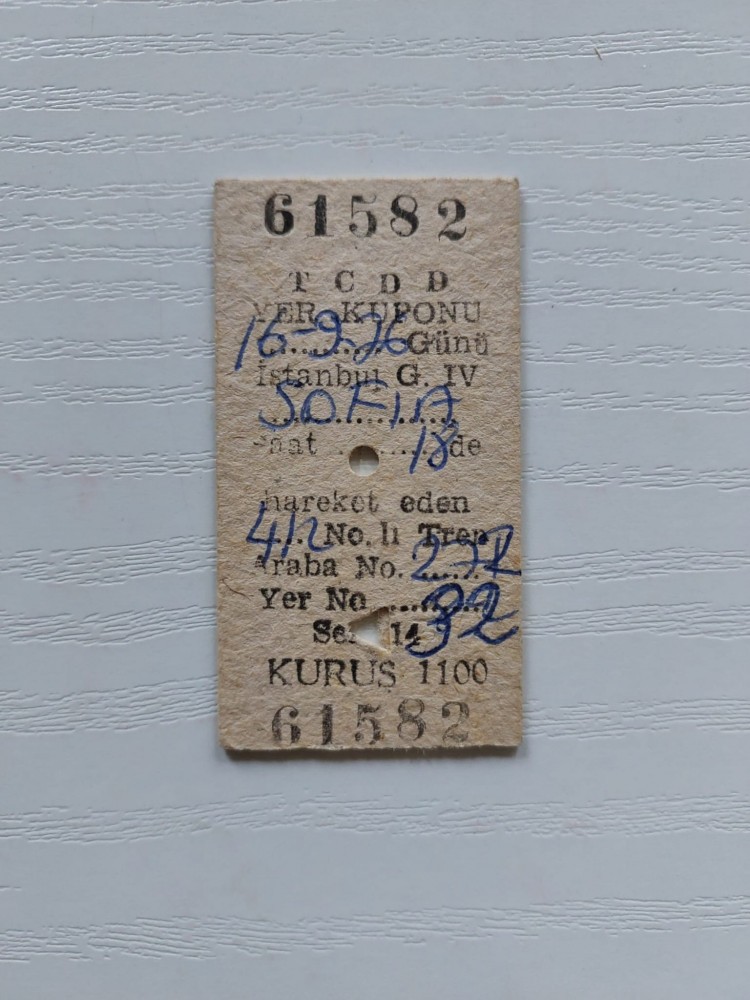 61582
T C D D
YER KUPONU
16-9-76 Günü
İstanbul G. IV
SOFIA
saat ........ 18 de
hareket eden
412 No. lı Tren
Araba No.
Yer No 32
Seri 14
KURUŞ 1100
61582